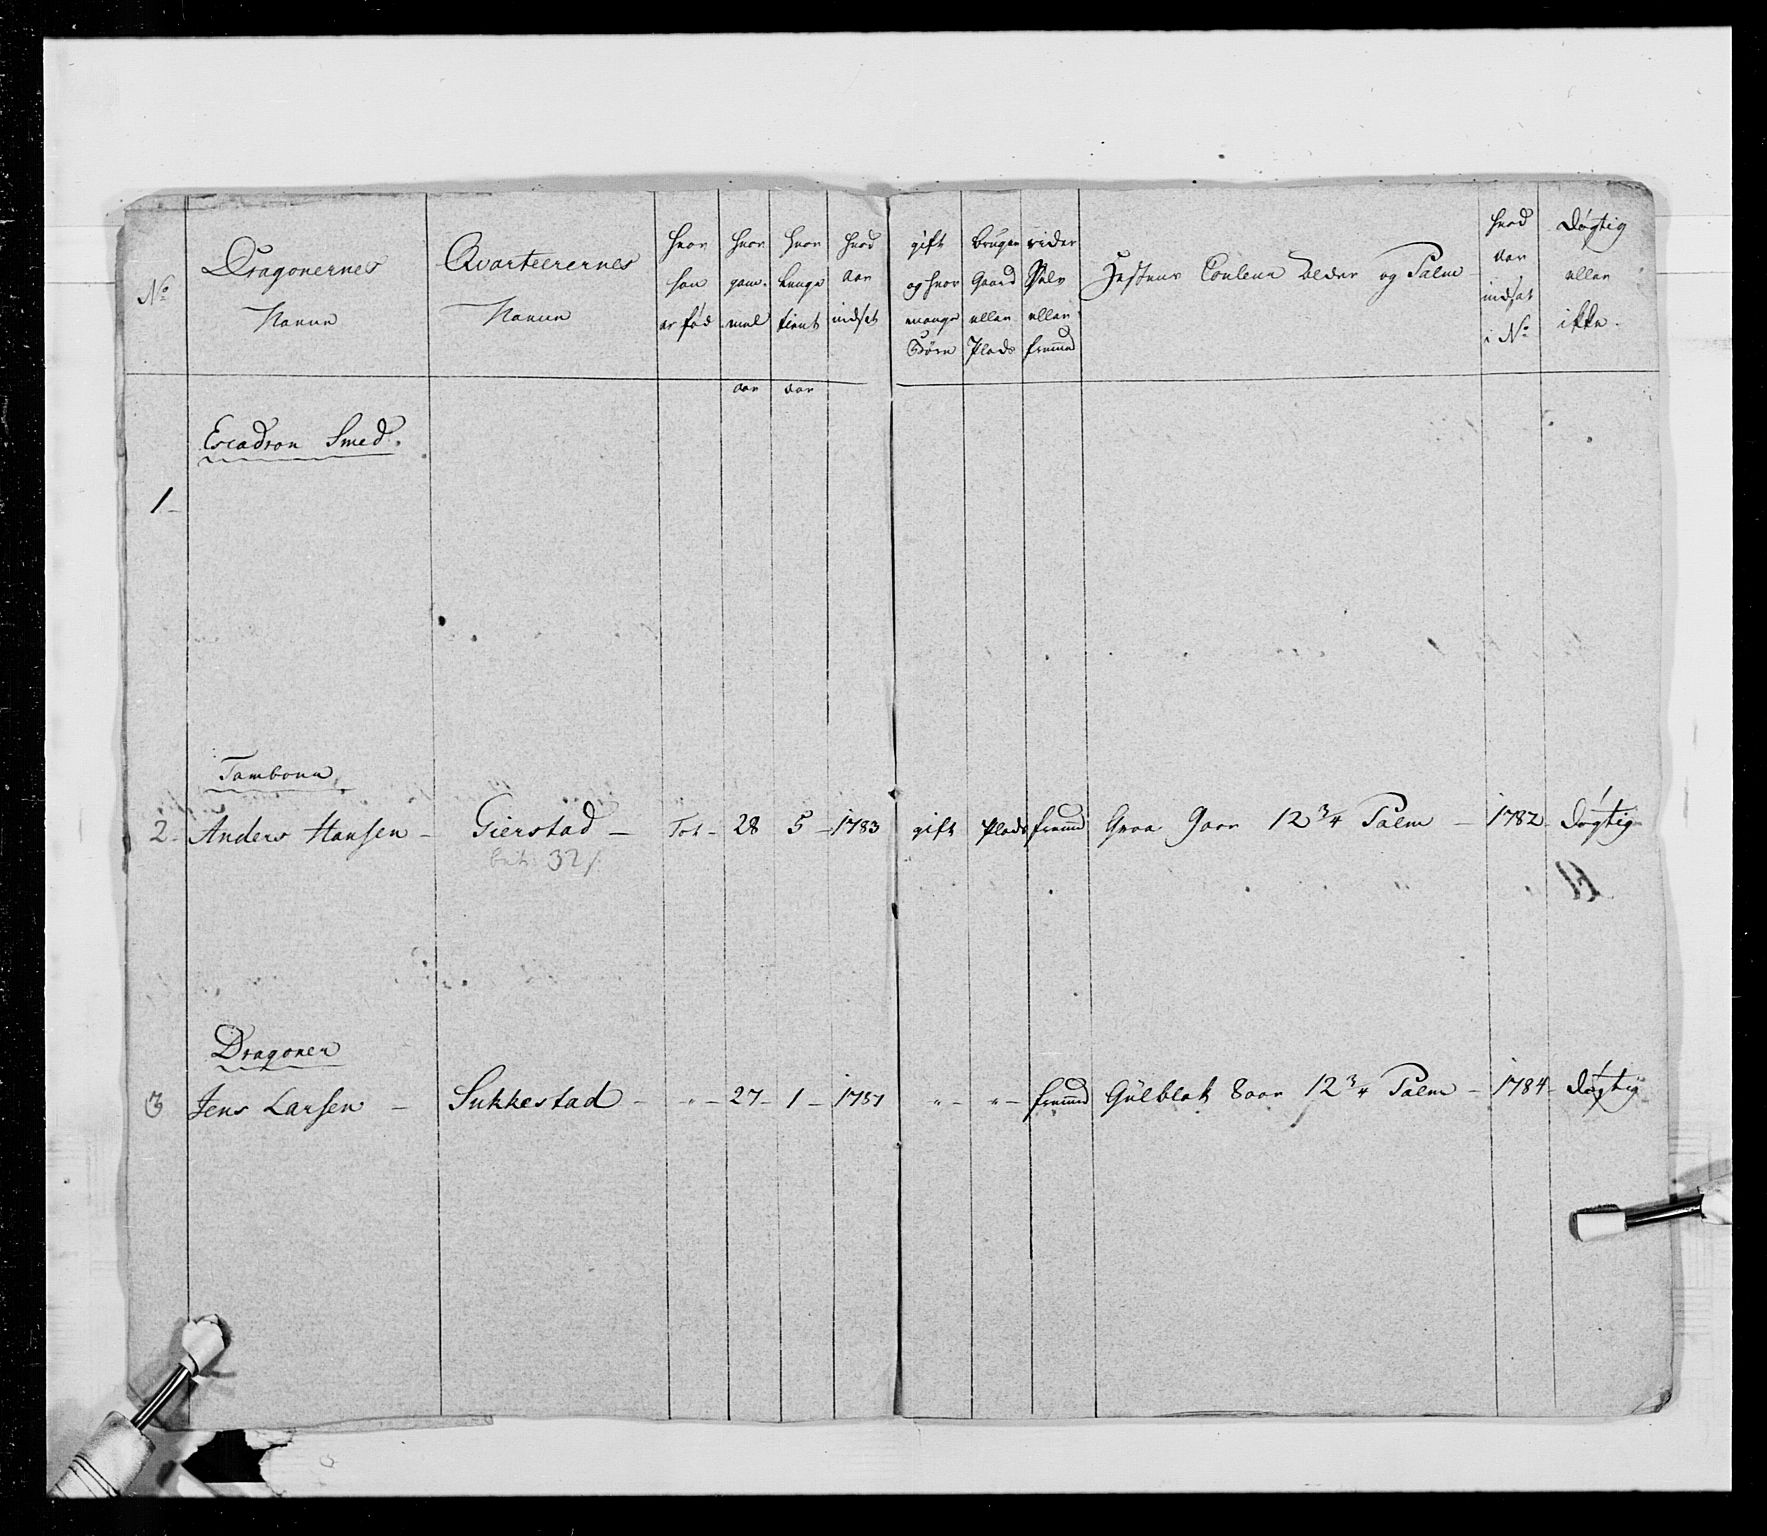 No
Dragonernes Navne
Qvarteerernes Navne
hvor han er fød
hvor gam-mel
hvor lenge tient
hvad aar indsat
gift og hvor mange Børn
bruger Gaard eller Plads
rider Selv eller fremmed
Hestens Couleur Alder og Palm
hvad aar indsat i No
døgtig eller ikke.
aar aar
Escadron Smed.
1
Tambour
2 Anders Hansen – Gierstad – Tot – 28 5 – 1783 gift Plads fremd Graa 9 aar 12 3/4 Palm – 1782 døgtig
32
Dragoner
3 Jens Larsen – Sukkestad – " – 27 – 1 – 1787 " – " – fremmed Gulblak 8 aar 12 3/4 Palm – 1784 døgtig